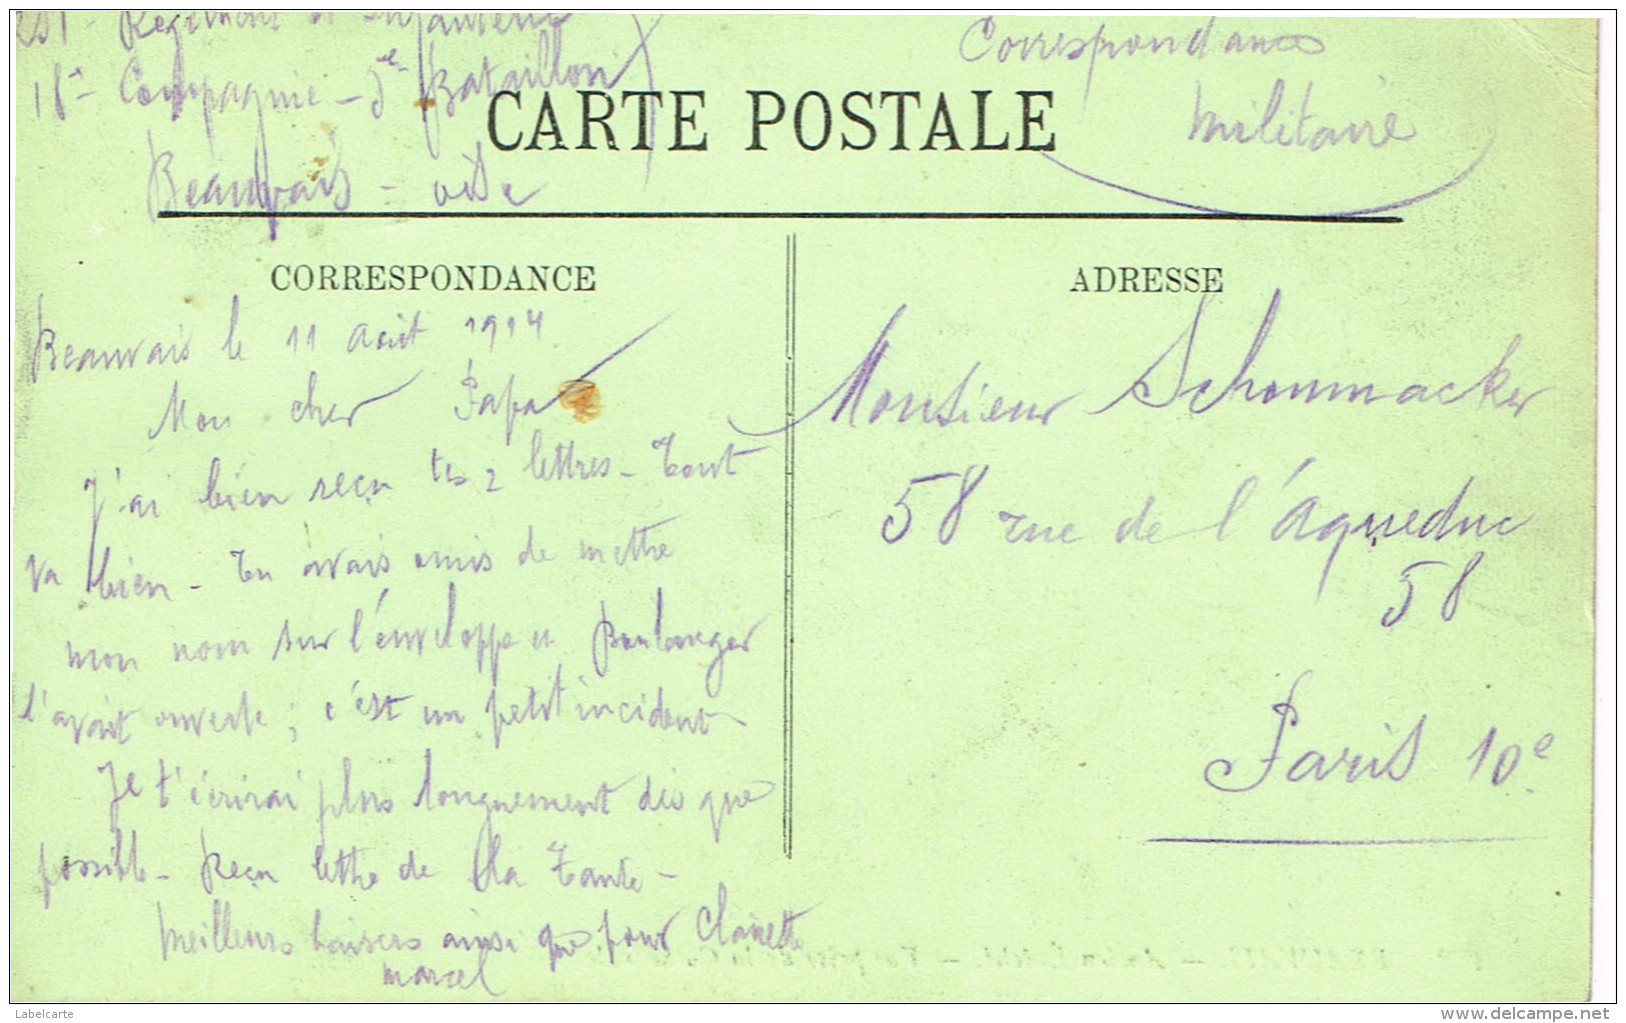 Régiment d'Infanterie
18e Compagnie - 5e Bataillon
Beauvais - oise
Correspondance
Militaire
CARTE POSTALE
CORRESPONDANCE
Beauvais le 11 Août 1914
Mon cher Papa
J'ai bien reçu tes 2 lettres - Tout
va bien - Tu avais omis de mettre
mon nom sur l'enveloppe et Boulanger
l'avait ouverte ; c'est un petit incident -
Je t'écrirai plus longuement dès que
possible - Reçu lettre de la Tante -
Meilleurs baisers ainsi que pour Clairette
Marcel
ADRESSE
Monsieur Schoumacker
58 rue de l'Aqueduc
58
Paris 10e
Labelcarte
delcampe.net